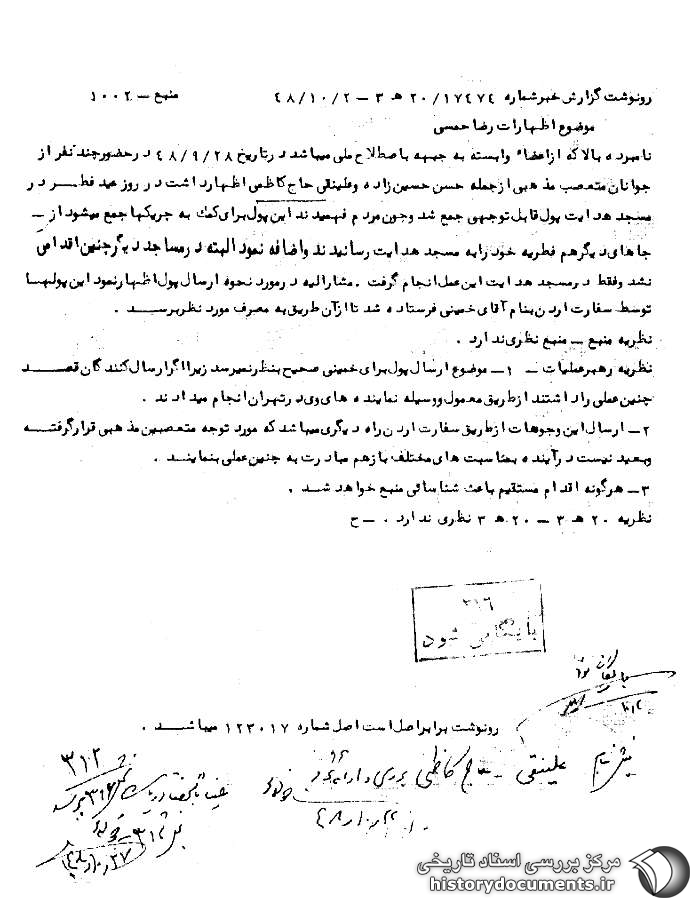 رونوشت گزارش خبر شماره ۲۰/۱۷۴۷۴ هـ ۳ – ۴۸/۱۰/۲ منبع – ۱۰۰۲
موضوع اظهارات رضا حمسی
نامبرده بالا که از اعضاء وابسته به جبهه باصطلاح ملی میباشد در تاریخ ۴۸/۹/۲۸ در حضور چند نفر از
جوانان متعصب مذهبی از جمله حسن حسین زاده وعلینقی حاج کاظمی اظهار داشت در روز عید فطر در
مسجد هدایت پول قابل توجهی جمع شد وچون مردم فهمیدند این پول برای کمک به چریکها جمع میشود از –
جاهای دیگر هم فطریه خود رابه مسجد هدایت رسانیدند واضافه نمود البته در مساجد دیگر چنین اقدامی
نشد وفقط در مسجد هدایت این عمل انجام گرفت . مشارالیه در مورد نحوه ارسال پول اظهار نمود این پولها
توسط سفارت اردن بنام آقای خمینی فرستاده شد تا از آن طریق به مصرف مورد نظر برسد .
نظریه منبع – منبع نظری ندارد .
نظریه رهبر عملیات – ۱– موضوع ارسال پول برای خمینی صحیح بنظر نمیرسد زیرا اگر ارسال کنندگان قصد
چنین عملی را داشتند از طریق معمول ووسیله نماینده های وی در تهران انجام میدادند .
۲– ارسال این وجوهات از طریق سفارت اردن راه دیگری میباشد که مورد توجه متعصبین مذهبی قرار گرفته
وبعید نیست در آینده بمناسبت های مختلف باز هم مبادرت به چنین عملی بنمایند .
۳– هرگونه اقدام مستقیم باعث شناسائی منبع خواهد شد .
نظریه ۲۰ هـ ۳ – ۲۰ هـ ۳ نظری ندارد . – ح
۳۱۶
بایگانی شود
رونوشت برابر اصل است اصل شماره ۱۲۳۰۱۷ میباشد .
علینقی حاج کاظمی
۳۱۲
مرکز بررسی اسناد تاریخی
historydocuments.ir